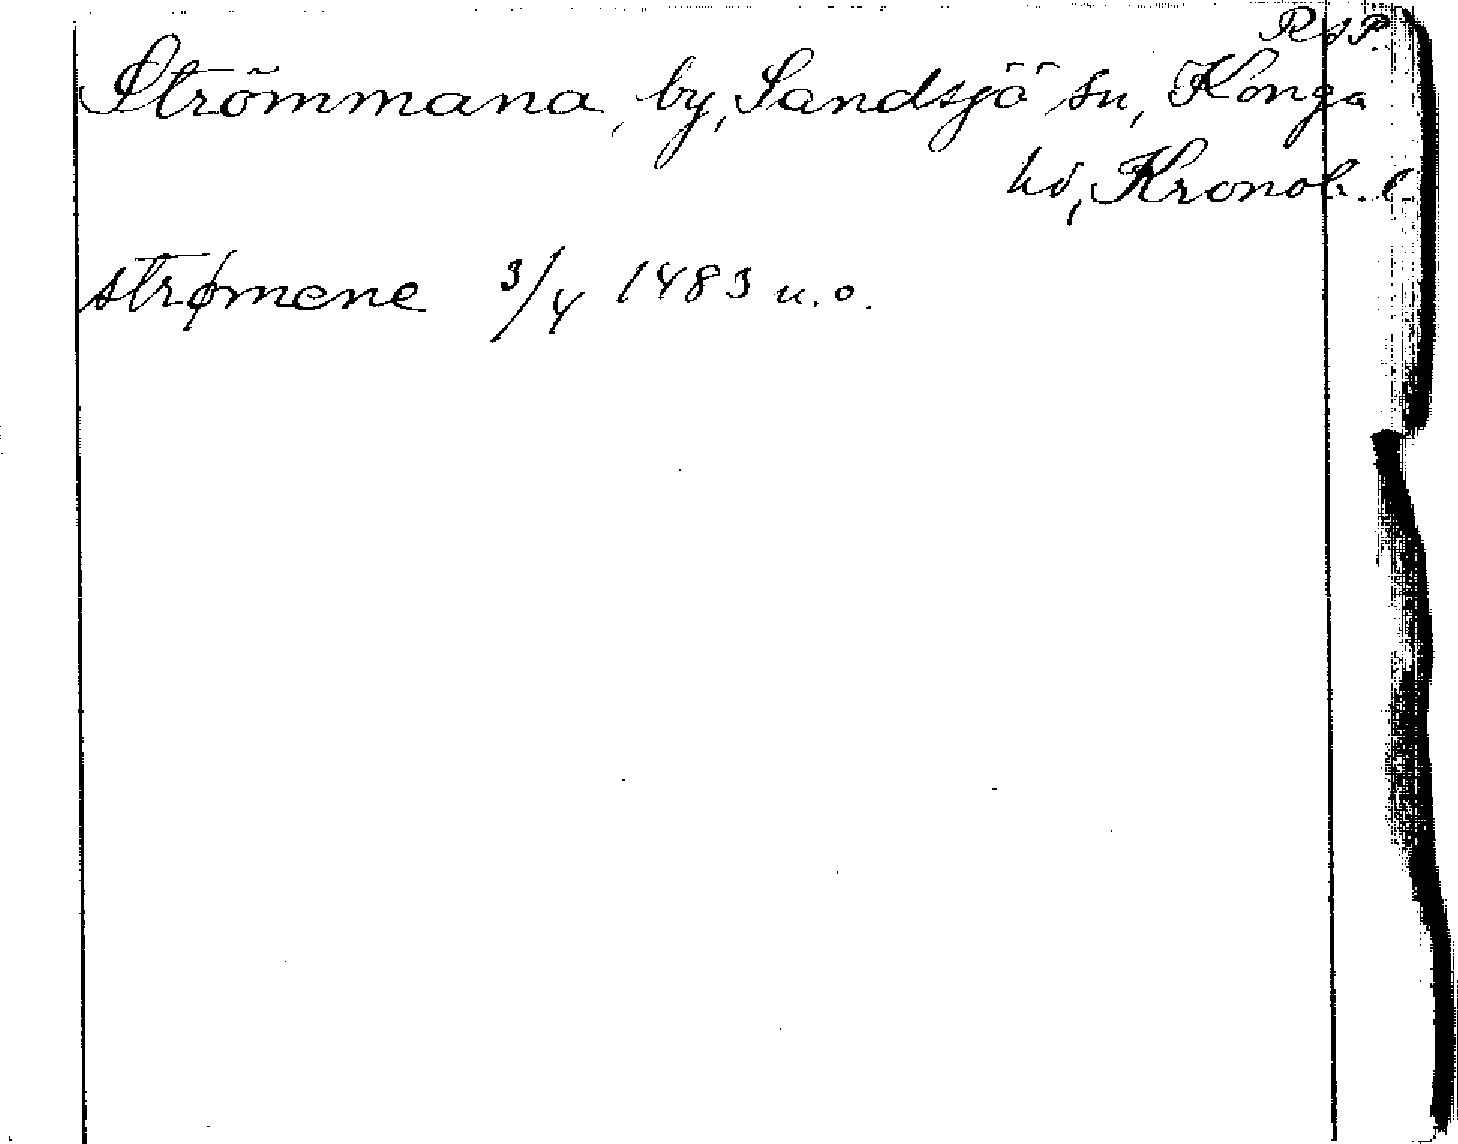 RAP.
Strömmana, by, Sandsjö sn, Konga
hd, Kronob. l.
strømene 3/4 1483 u.o.